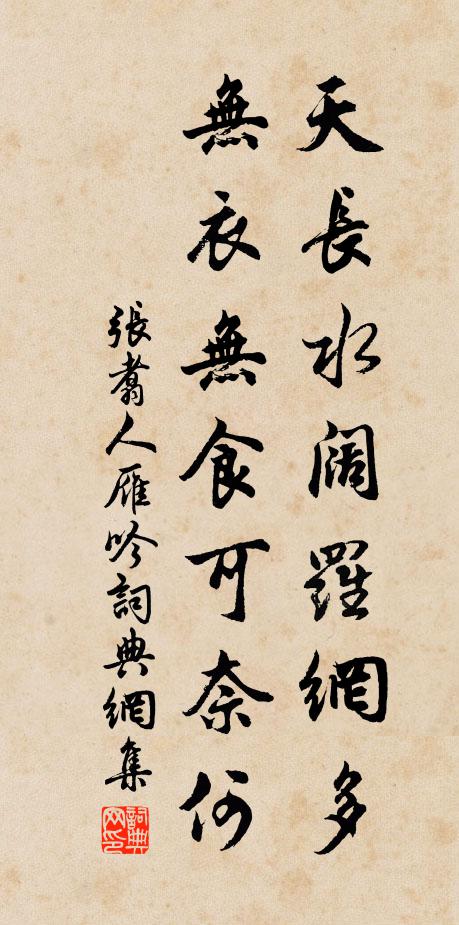 天長水闊羅網多
無衣無食可奈何
張翥人雁吟詞典網集
詞典网印